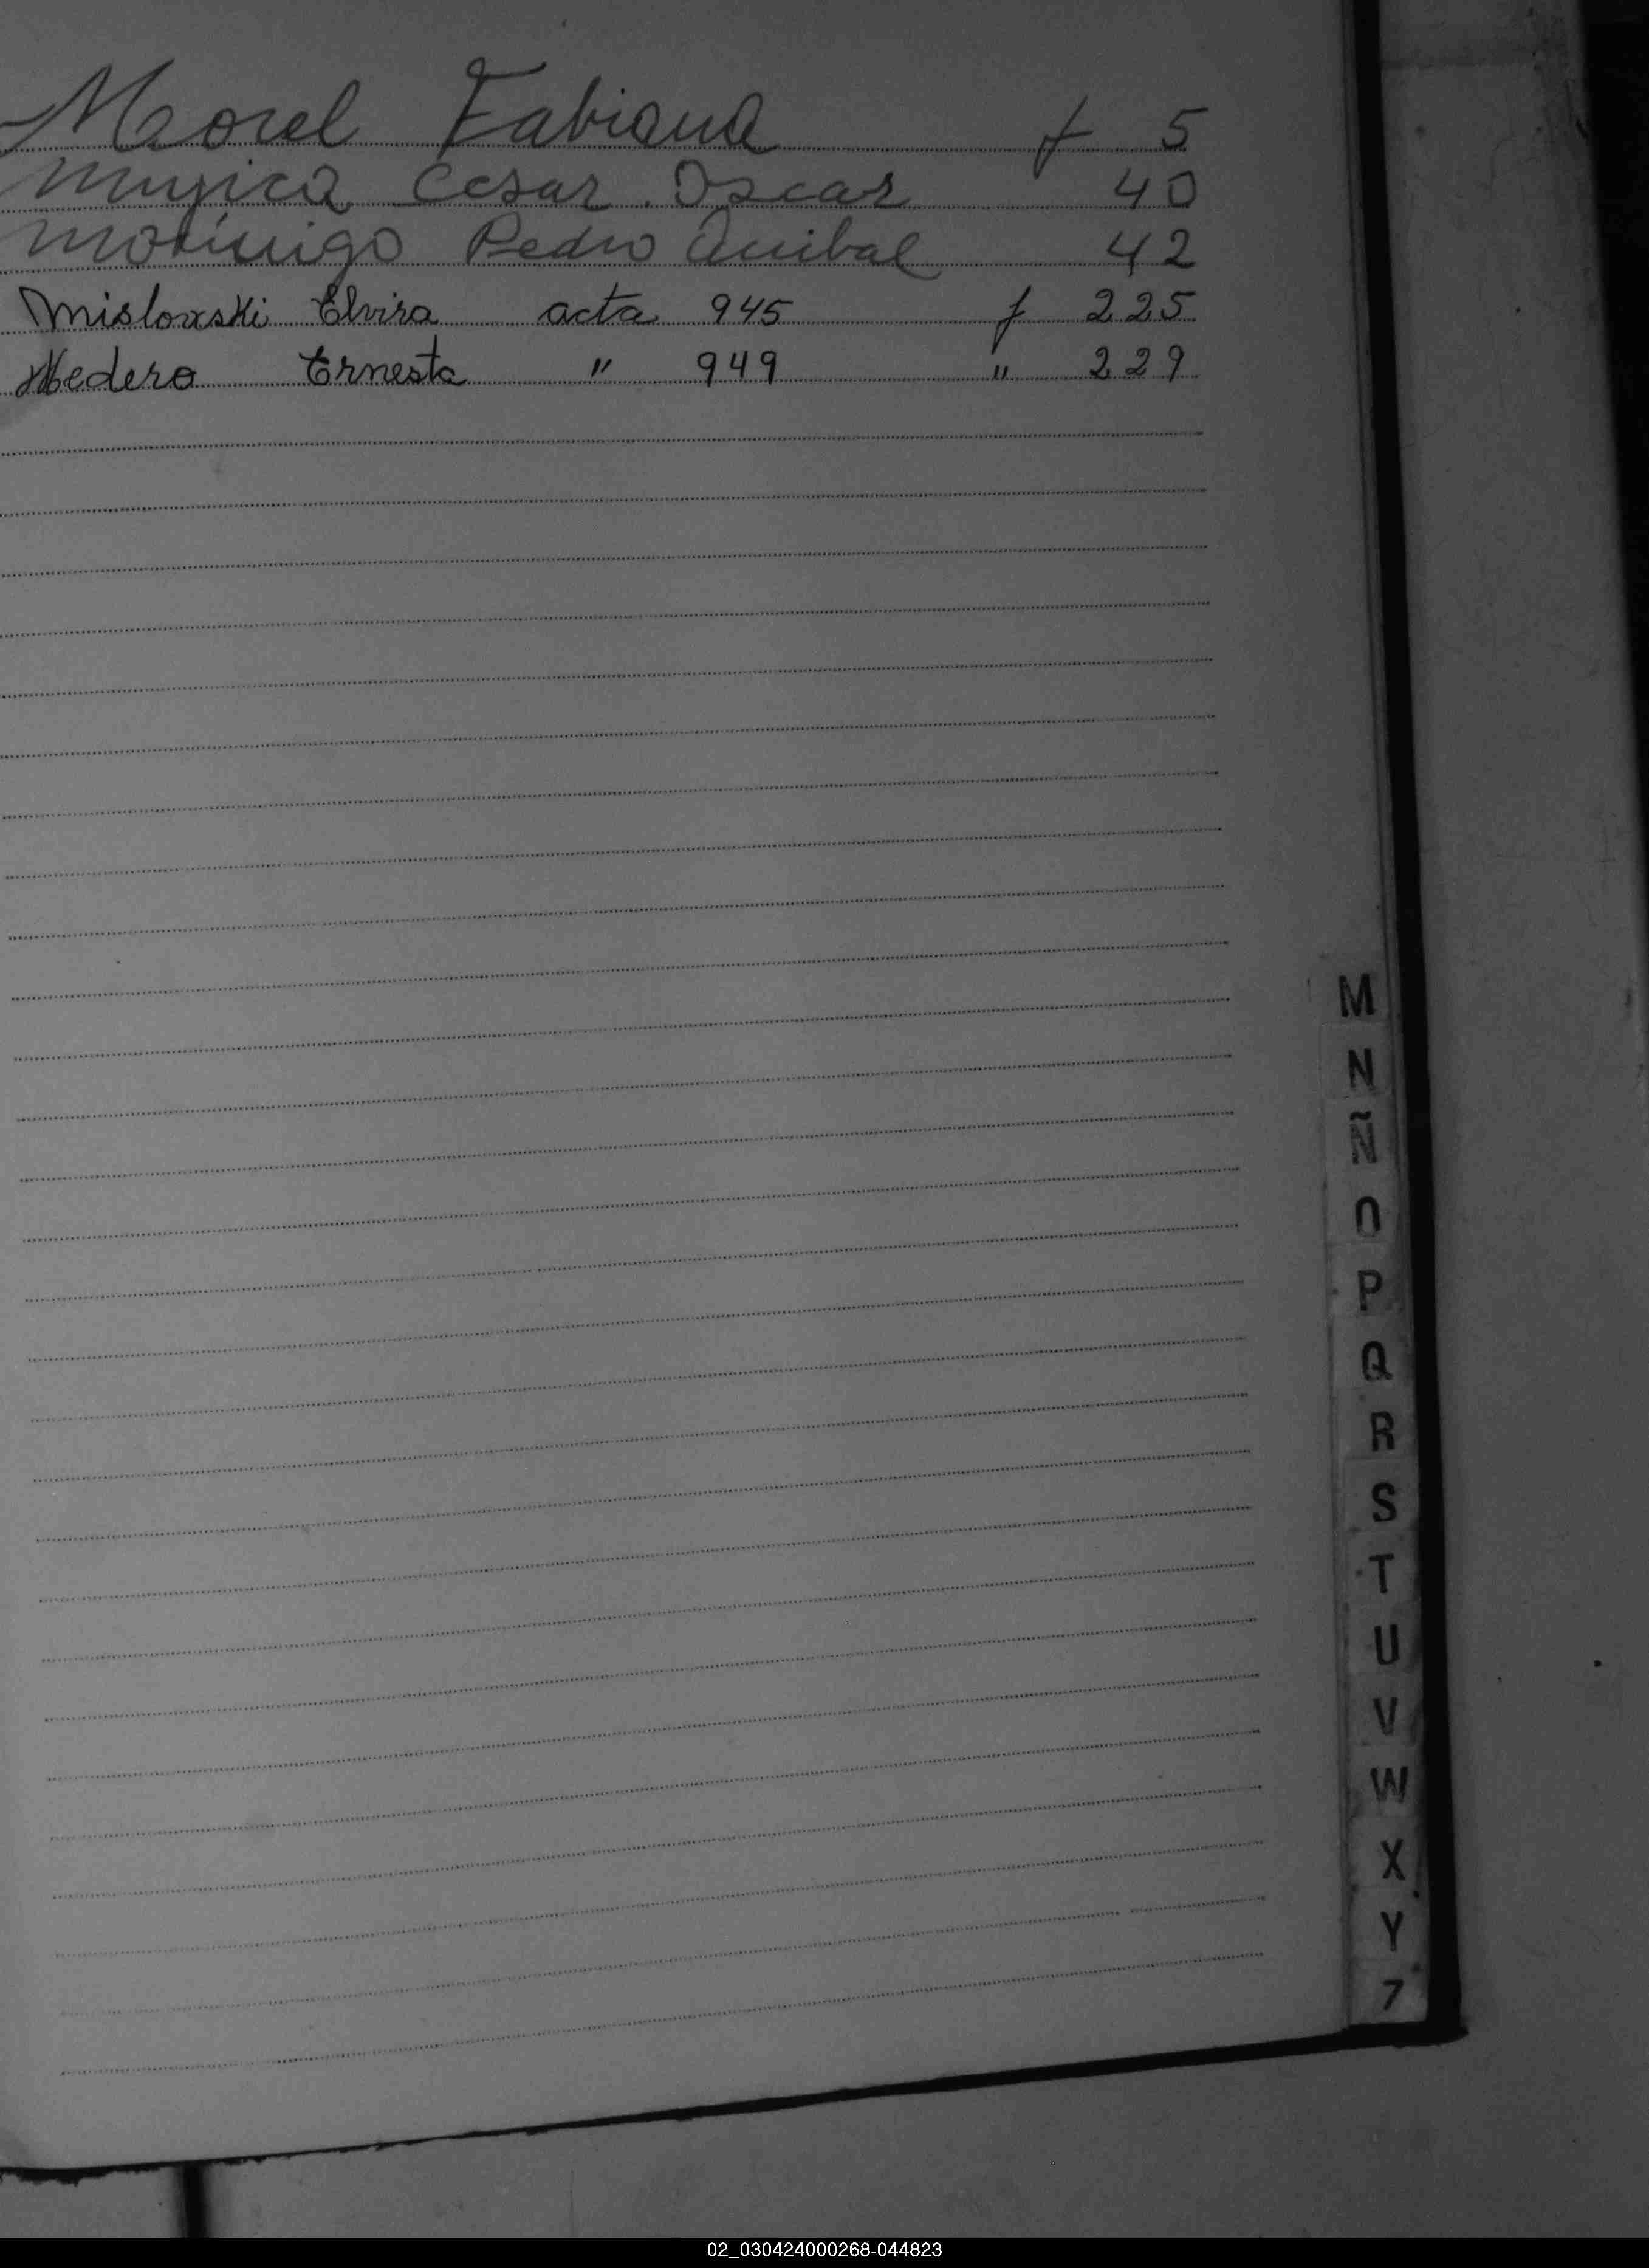 Morel Fabiana f 5
Mujica Cesar Oscar 40
Morínigo Pedro Anibal 42
Misloxski Elvira acta 945 f 225
Medero Ernesta " 949 " 229
M
N
Ñ
O
P
Q
R
S
T
U
V
W
X
Y
Z
02_030424000268-044823